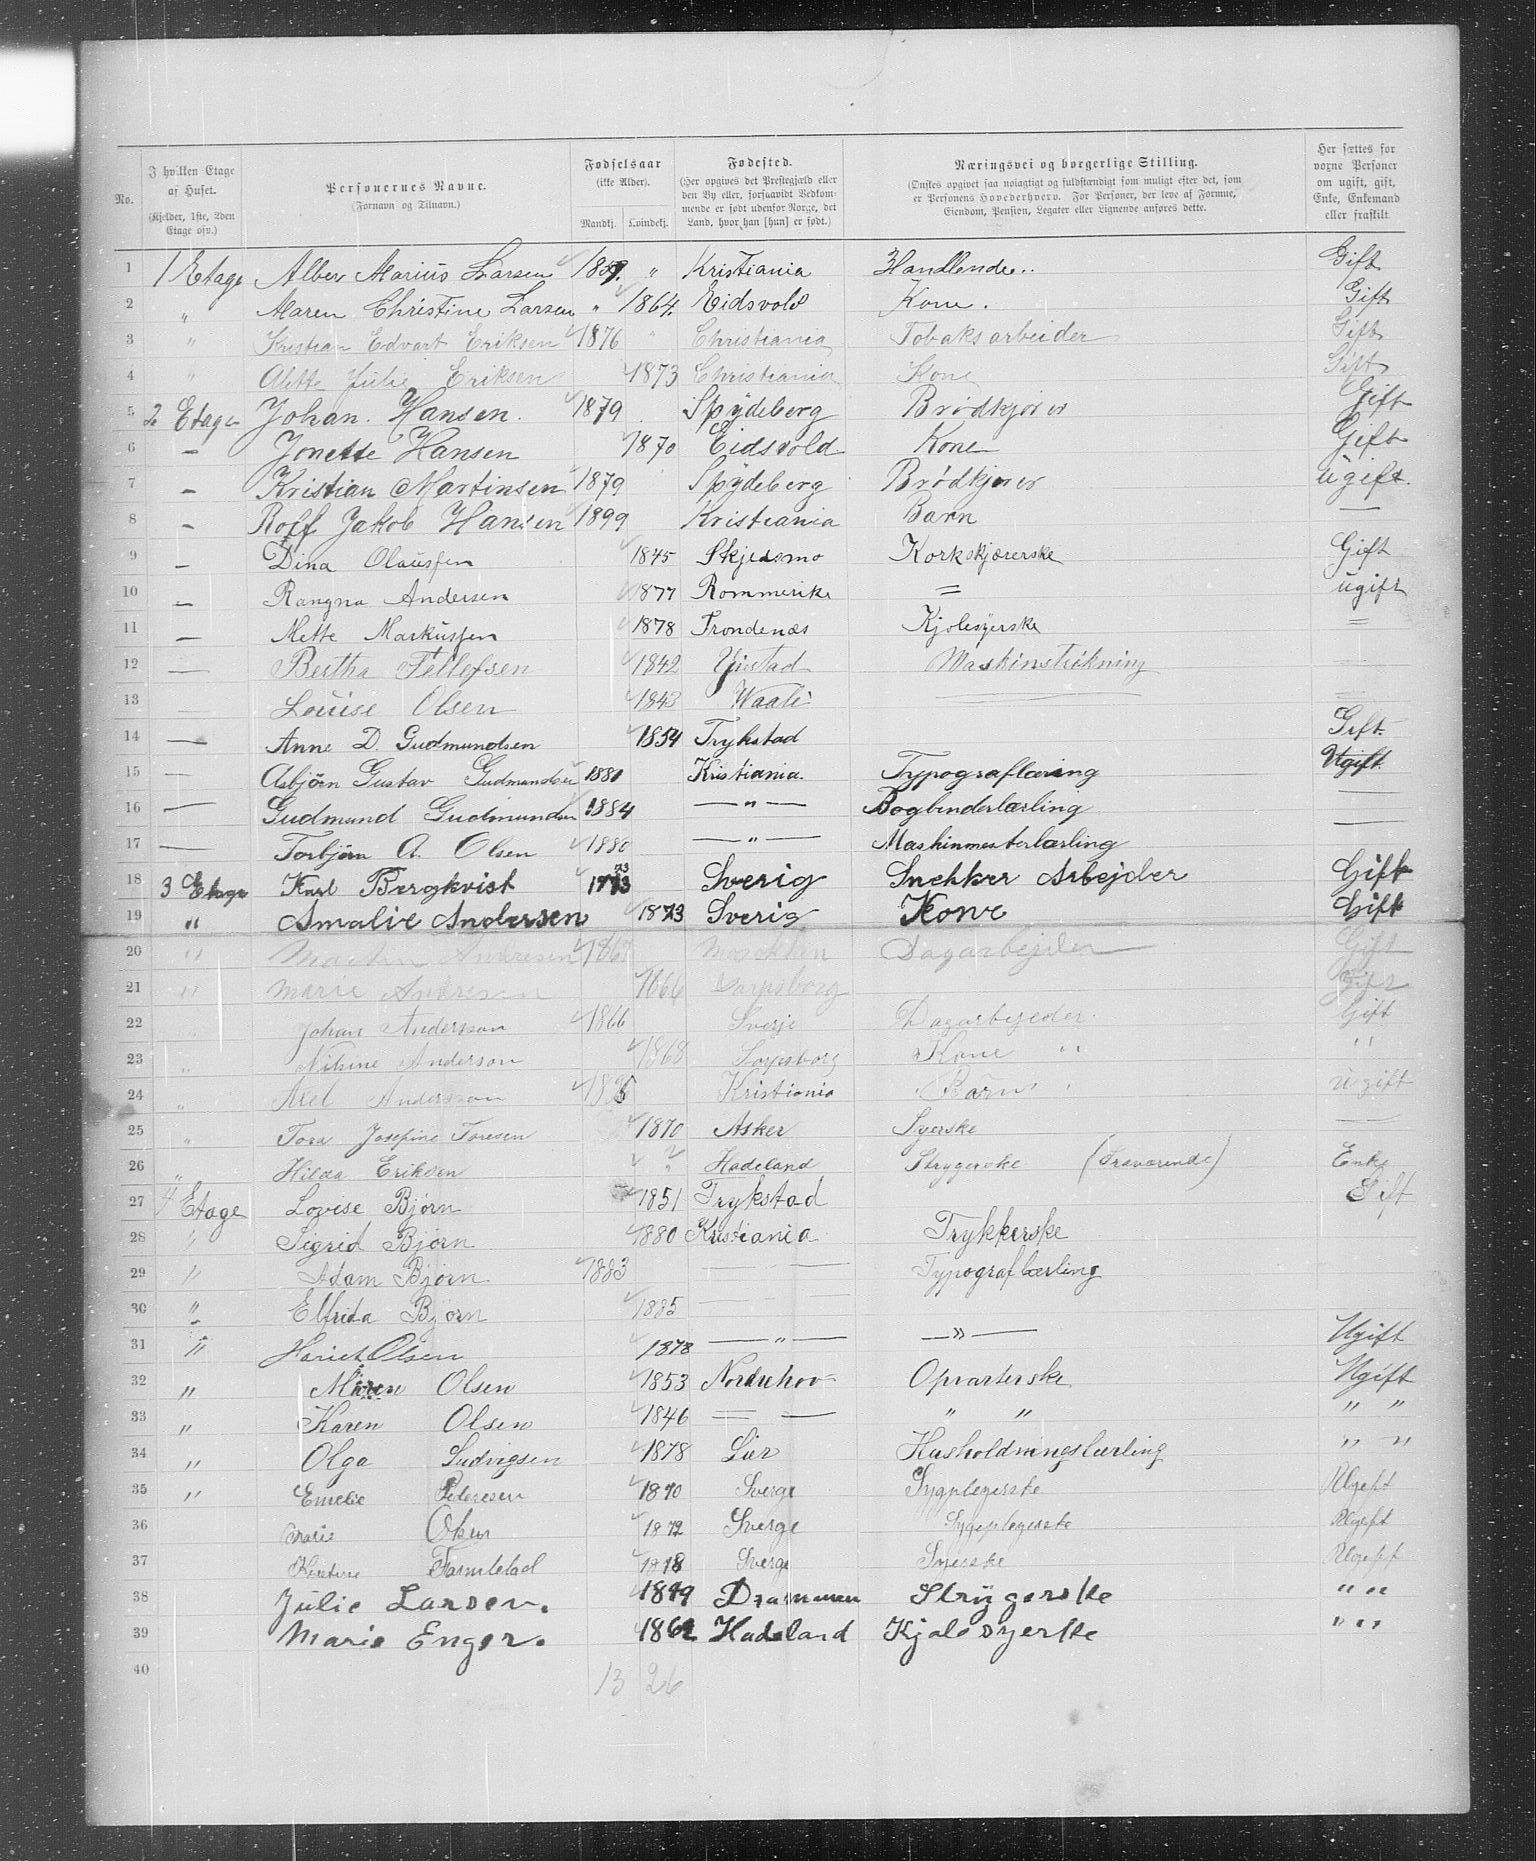 No. I hvilken Etage af Huset. (Kjelder, 1ste, 2den Etage osv.) Personernes Navne. (Fornavn og Tilnavn.) Fødselsaar (ikke Alder). Mandkj. Kvindekj. Fødested. (Her opgives det Prestegjæld eller den By eller, forsaavidt Vedkommende er født udenfor Norge, det Land, hvor han [hun] er født.) Næringsvei og borgerlige Stilling. (Ønskes opgivet saa nøiagtigt og fuldstændigt som muligt efter det, som er Personens Hovederhverv. For Personer, der leve af Formue, Eiendom, Pension, Legater eller Lignende anføres dette. Her sættes for voxne Personer om ugift, gift, Enke, Enkemand eller fraskilt
1 1 Etage Alber Marius Larsen " Kristiania Handlende.. Gift
2 " Maren Christine Larsen " 1864. Eidsvold Kone. Gift
3 " Kristian Edvart Eriksen 1876 " Christiania Tobaksarbeider Gift
4 " Alette Julie Eriksen 1873 Christiania Kone Gift
5 2 Etage Johan. Hansen. 1879 Spydeberg Brødkjører Gift
6 — Jonette Hansen 1870 Eidsvold Kone Gift
7 — Kristian Martinsen 1879 Spydeberg Brødkjører ugift.
8 — Rolf Jakob Hansen 1899 Kristiania Barn —
9 — Dina Olaussen 1845 Skjedsmo Korkskjærerske Gift
10 — Rangna Andersen 1877 Rommerike = ugift
11 — Mette Markussen 1878 Trondenæs Kjolesyerske =
12 — Bertha Tellefsen 1842 Maskinstrikning
13 — Louise Olsen 1843
14 — Anne D. Gudmundsen 1854 Trykstad Gift.
15 — Asbjörn Gustav Gudmundsen 1881 Kristiania. Typograflæring Ugift
16 — Gudmund Gudmundsen 1884 — " — Bogbinderlærling —
17 — Torbjörn A. Olsen 1880 — " — Maskinmesterlærling —
18 3 Etage Karl Bergkvist 73 Sverig Snehker Arbejder Gift
19 " Amalie Andersen 1873 Sverig Kone Gift
20 " Andresen Dagarbejder Gift
21 " Marie Andresen 1866 Sarpsborg
22 Johan Andersson 1866 Sverje Dagarbejeder. Gift
23 " Anderson 1868 Sarpsborg Kone " "
24 " Axel Andersson Kristiania Barn ugift
25 " Tora Josefine Toresen 1870 Asker Syerske —
26 " Hilda Eriksen " Hadeland Strygerske (Fraværende) Enke
27 4 Etage Lovise Bjørn 1851 Trykstad Gift
28 " Sigrid Bjørn 1880 Kristiania Trykkerske
29 " Adam Bjørn 1883 — — Typograflærling
30 " Elfrida Bjørn 1885 — —
31 " Hariet Olsen 1878 — " — —"— Ugift
32 " Maren Olsen 1853 Norderhov Opvarterske Ugift
33 " Karen Olsen 1846 = — " " " "
34 " Olga Ludvigsen 1878 Lier Husholdningslærling " "
35 " Emelie Petersen 1870 Sverge Sygplegerske Ugeft
36 Marie 1872 Sverge Sygeplegerske Ugeft
37 Sverge Syerske Ugeft
38 Julie Larsen. 1849 Drammen Strygerske " "
39 Marie Enger. 1862 Hadeland Kjolesyerske " "
40 13 26